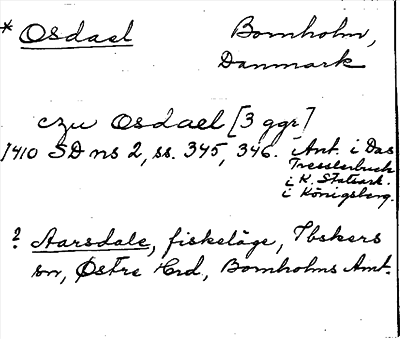 * Osdael Bornholm,
Danmark
czu Osdael [3 ggr]
1410 SD ns 2, ss. 345, 346. Ant. i Das
Tresslerbuch
i K. Statsark.
i Königsberg.
? Aarsdale, fiskeläge, Ibskers
sn, Østre Hrd, Bornholms Amt.